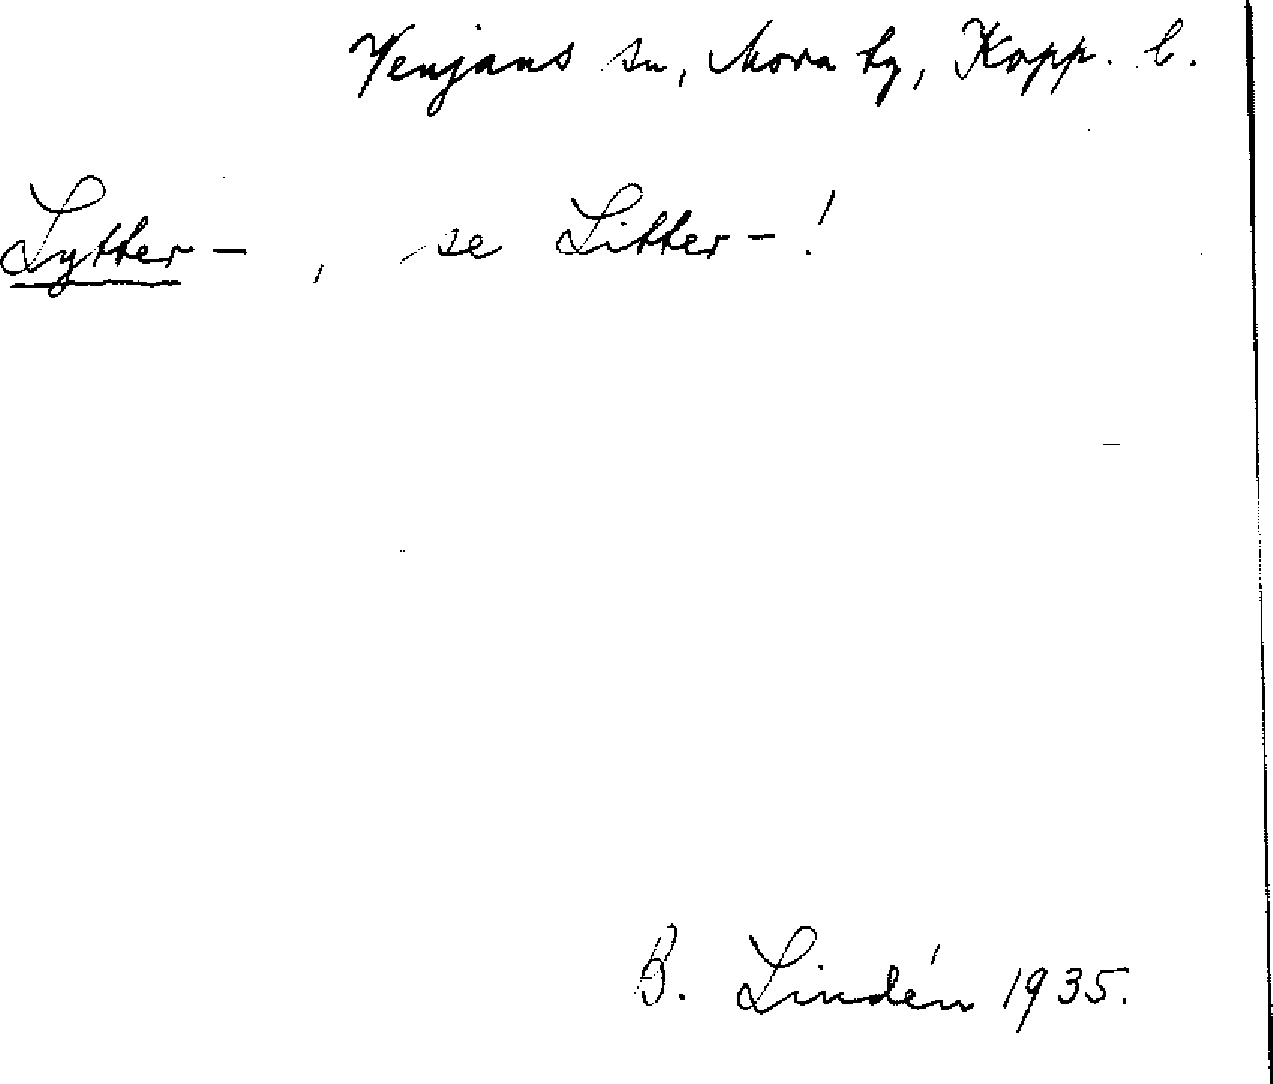 Venjans sn, Mora tg, Kopp. l.
Lytter- , se Litter-!
B. Lindén 1935.